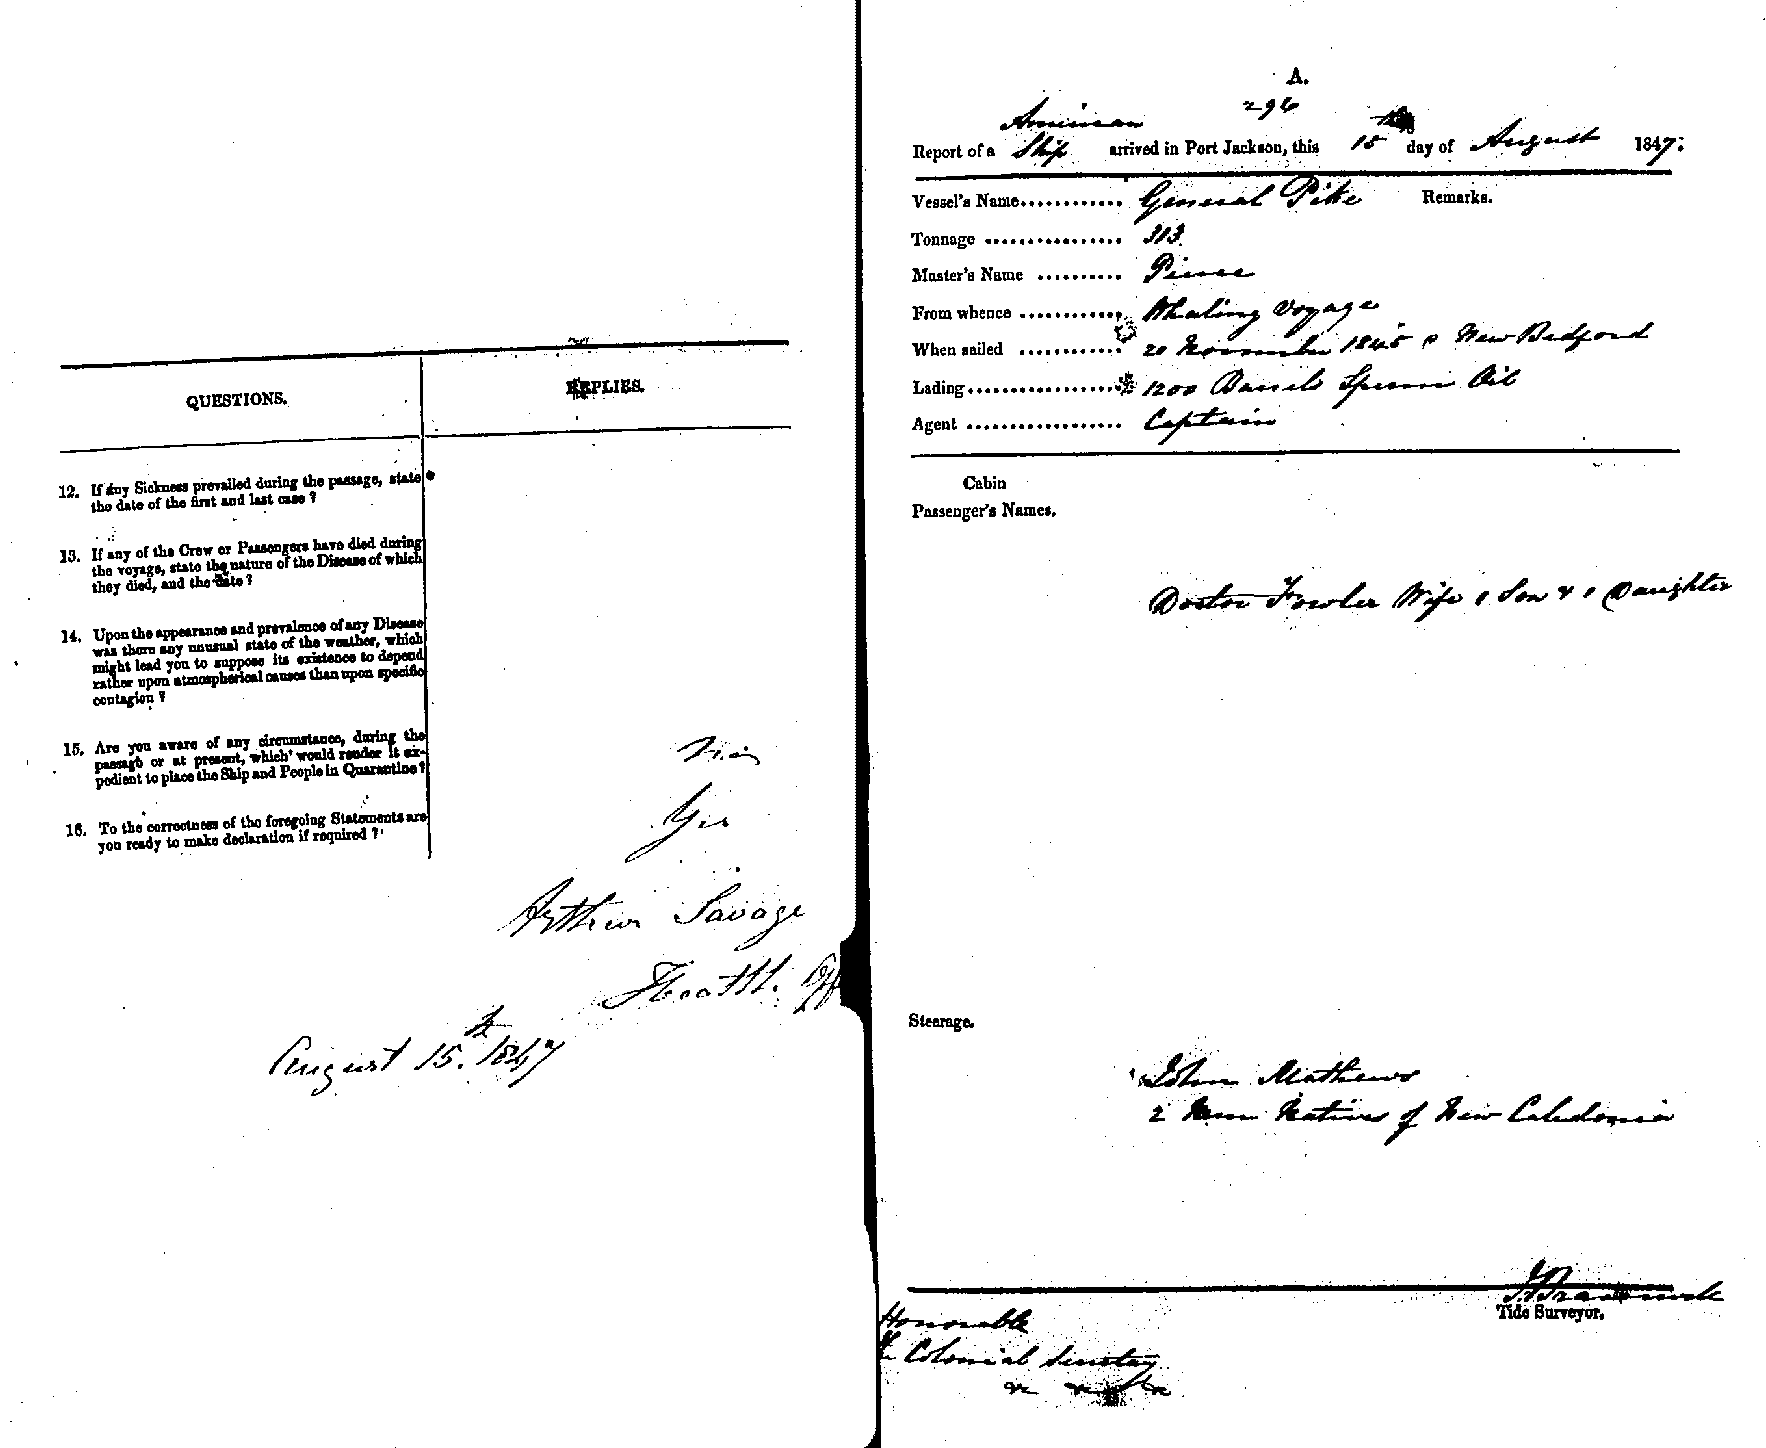 QUESTIONS.
REPLIES.
12. If any Sickness prevailed during the passage, state
the date of the first and last case ?
13. If any of the Crew or Passengers have died during
the voyage, state the nature of the Disease of which
they died, and the date ?
14. Upon the appearance and prevalence of any Disease
was there any unusual state of the weather, which
might lead you to suppose its existence to depend
rather upon atmospherical causes than upon specific
contagion ?
15. Are you aware of any circumstance, during the
passage or at present, which would render it ex-
pedient to place the Ship and People in Quarantine ?
16. To the correctness of the foregoing Statements are
you ready to make declaration if required ?
Yes
Arthur Savage
Health Off
August 15th 1847
A.
296
American
Report of a Ship arrived in Port Jackson, this 15th day of August 1847.
Vessel's Name............ General Pike Remarks.
Tonnage ................ 313
Master's Name .......... Pierce
From whence ............ Whaling Voyage
When sailed ............ 20 November 1845 New Bedford
Lading.................. 1200 Barrels Sperm Oil
Agent .................. Captain
Cabin
Passenger's Names.
Doctor Fowler Wife 1 Son & 1 Daughter
Steerage.
John Mathews
2 Men Natives of New Caledonia
Tide Surveyor.
Honorable
The Colonial Secretary